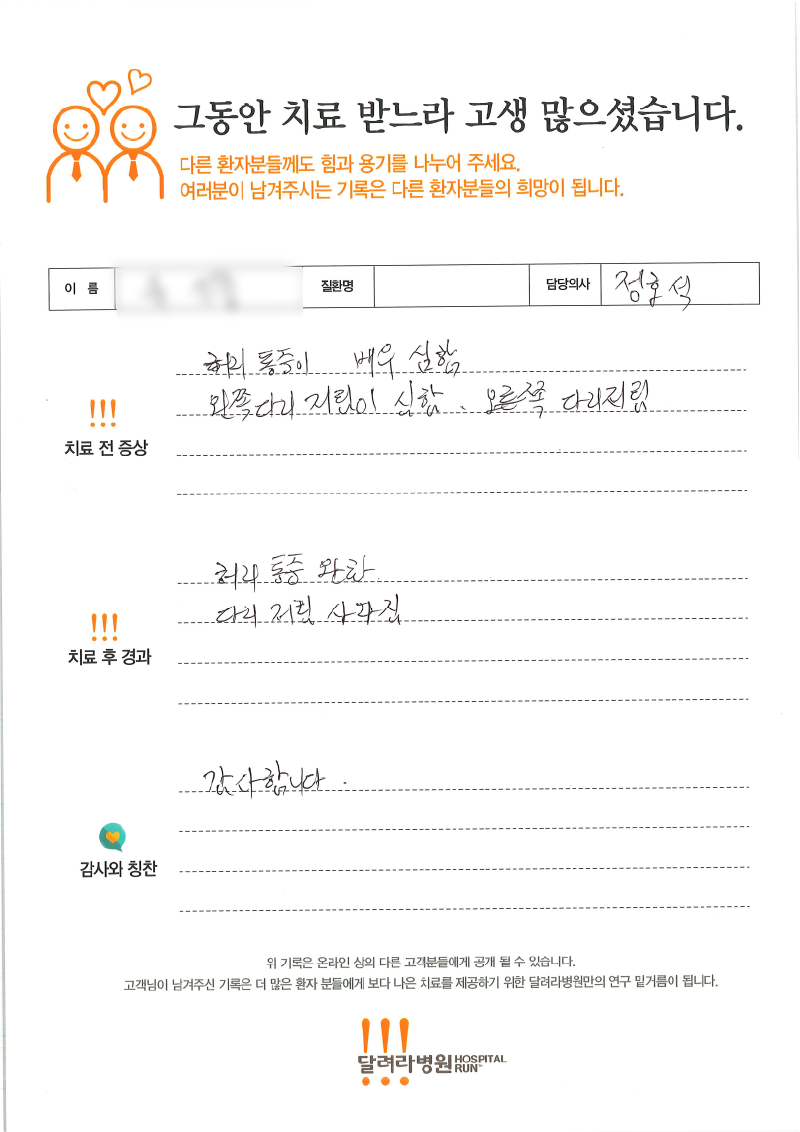 그동안 치료 받느라 고생 많으셨습니다.
다른 환자분들께도 힘과 용기를 나누어 주세요.
여러분이 남겨주시는 기록은 다른 환자분들의 희망이 됩니다.
이 름 질환명 담당의사 정호석
허리 통증이 배우 심함
왼쪽다리 저림이 심함. 오른쪽 다리저림
!!!
치료 전 증상
허리 통증 완화
다리 저림 사라짐
!!!
치료 후 경과
감사합니다.
감사와 칭찬
위 기록은 온라인 상의 다른 고객분들에게 공개 될 수 있습니다.
고객님이 남겨주신 기록은 더 많은 환자 분들에게 보다 나은 치료를 제공하기 위한 달려라병원만의 연구 밑거름이 됩니다.
!!!
달려라병원 HOSPITAL RUN